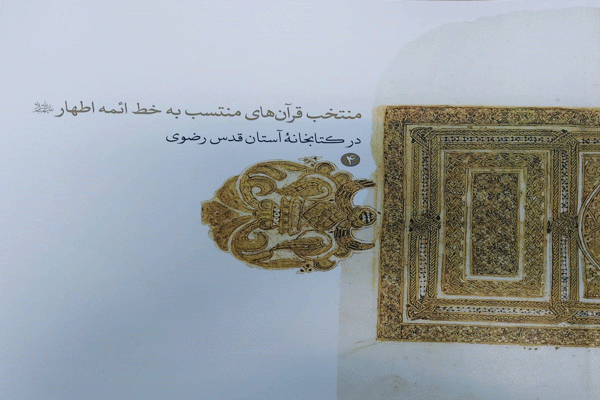 منتخب قرآن‌های منتسب به خط ائمه اطهار علیهم‌السلام
در کتابخانهٔ آستان قدس رضوی
۴